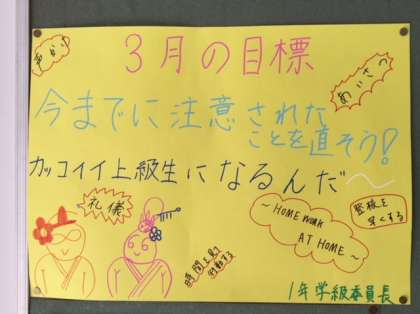 3月の目標
あいさつ
今までに注意された
ことを直そう!
カッコイイ上級生になるんだ〜
礼儀
〜HOME WORK
AT HOME〜
整列を
早くする
時間を見て
行動する
1年学級委員長